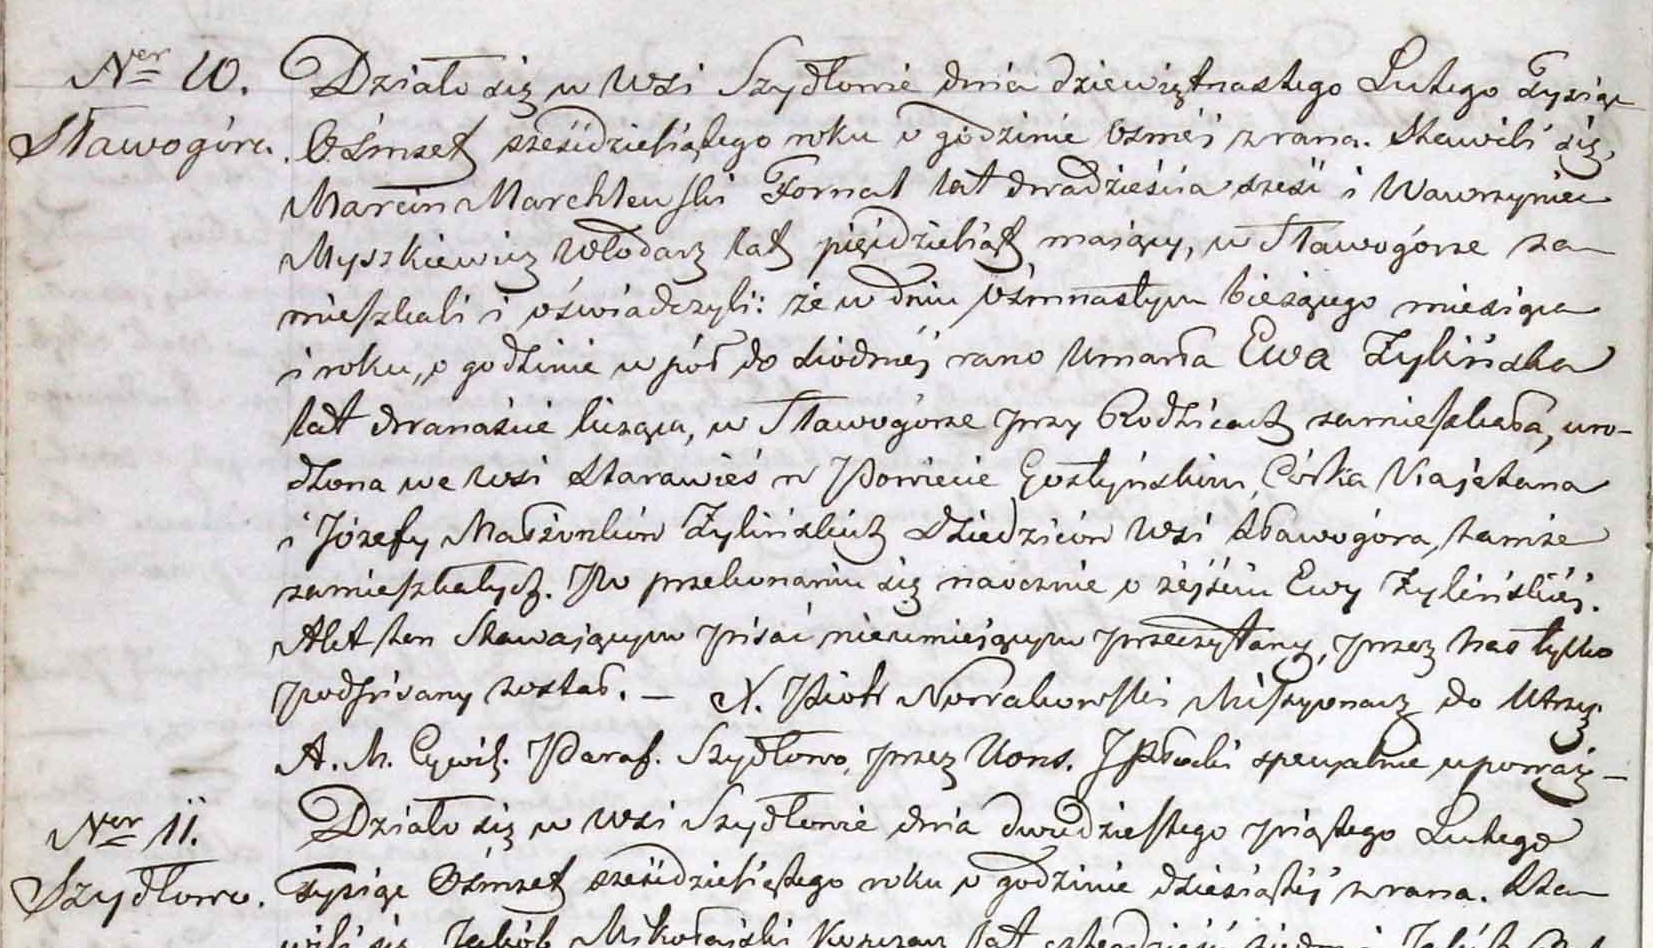 Ner 10. Działo się w Wsi Szydłowie dnia dziewiętnastego Lutego Tysiąc
Sławogóra. Ośmset sześćdziesiątego roku o godzinie ósméj z rana. Stawili się,
Marcin Marchlewski Fornal lat dwadzieścia sześć i Wawrzyniec
Myszkiewicz Włodarz lat pięćdziesiąt maiący, w Sławogórze za
mieszkali i oświadczyli: że w dniu ośmnastym bieżącego miesiąca
i roku, o godzinie w pół do siódméj rano Umarła Ewa Żylińska
lat dwanaście licząca, w Sławogórze przy Rodzicach zamieszkała, uro-
dzona we wsi Starawieś w Powiecie Gostyńskim, Córka Kajetana
i Józefy Małżonków Żylińskich Dziedziców Wsi Sławogóra, tamże
zamieszkałych. Po przekonaniu się naocznie o zejściu Ewy Żylińskiéj.
Akt ten Stawającym pisać nieumiejącym przeczytany, przez Nas tylko
podpisany został. — X. Piotr Nowakowski Missyonarz do Utrzy:
A. S. Cywil. Paraf. Szydłowo, przez Kons. J Płocki specyalnie upoważ—
Ner 11. Działo się w Wsi Szydłowie dnia dwudziestego piątego Lutego
Szydłowo. Tysiąc Ośmset sześćdziesiątego roku o godzinie dziesiątéj z rana. Sta—
wili się Jakób Mikołajski lat czterdzieści siedm i